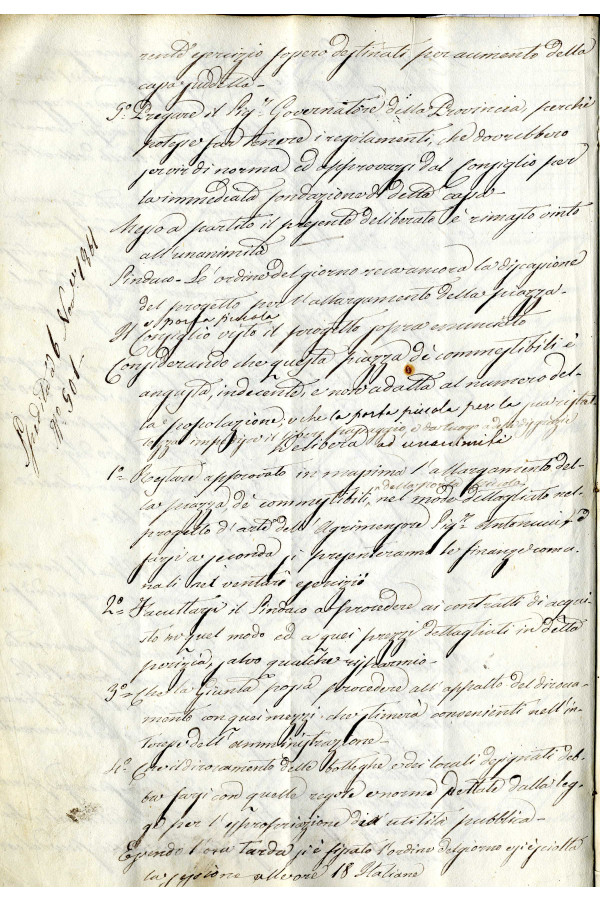 rente esercizio sopero destinati per aumento della
casa suddetta-
5º Pregare il Sigr. Governatore della Provincia, perchè
potesse far tenere i regolamenti, che dovrebbero
servir di norma ed approvarsi dal Consiglio per
la immediata fondazione di detta casa-
Messo a partito il presente deliberato è rimasto vinto
all'unanimità
Sindaco- Le ordine del giorno reca ancora la discussione
del progetto per l'allargamento della piazza-
e porta piccola
Il Consiglio visto il progetto sopra enunciato
Considerando che questa piazza de' commestibili è
angusta, indecente, e non adatta al numero del-
la popolazione, e che la porta piccola per la
impedisce il passaggio e da luogo ad
Delibera ad unanimità
1º= Restare approvato in massima l'allargamento del-
della porta piccola
la piazza de' commestibili, nel modo dettagliato nel
progetto d'arte dell'Agrimensore Sigr. Antonucci
farsi a seconda si presenteranno le finanze comu-
nali nei venturi esercizii
2º= Facultarsi il Sindaco a procedere ai contratti di acqui-
sto in quel modo ed a quei prezzi dettagliati in detta
perizia, salvo qualche risparmio-
3º= Che la Giunta possa procedere all'appalto del diroca-
mento con quei mezzi che stimerà convenienti nell'in-
teresse dell'amministrazione-
4º. Che il dirocamento delle botteghe e dei locali designati deb-
ba farsi con quelle regole e norme dettate dalla leg-
ge per l'espropriazione di utilità pubblica-
Essendo l'ora tarda, si è fissato l'ordine del giorno e si è sciolta
la sessione alle ore 18 Italiane
Spedita a 6 Nov. 1861
Nº. 501-